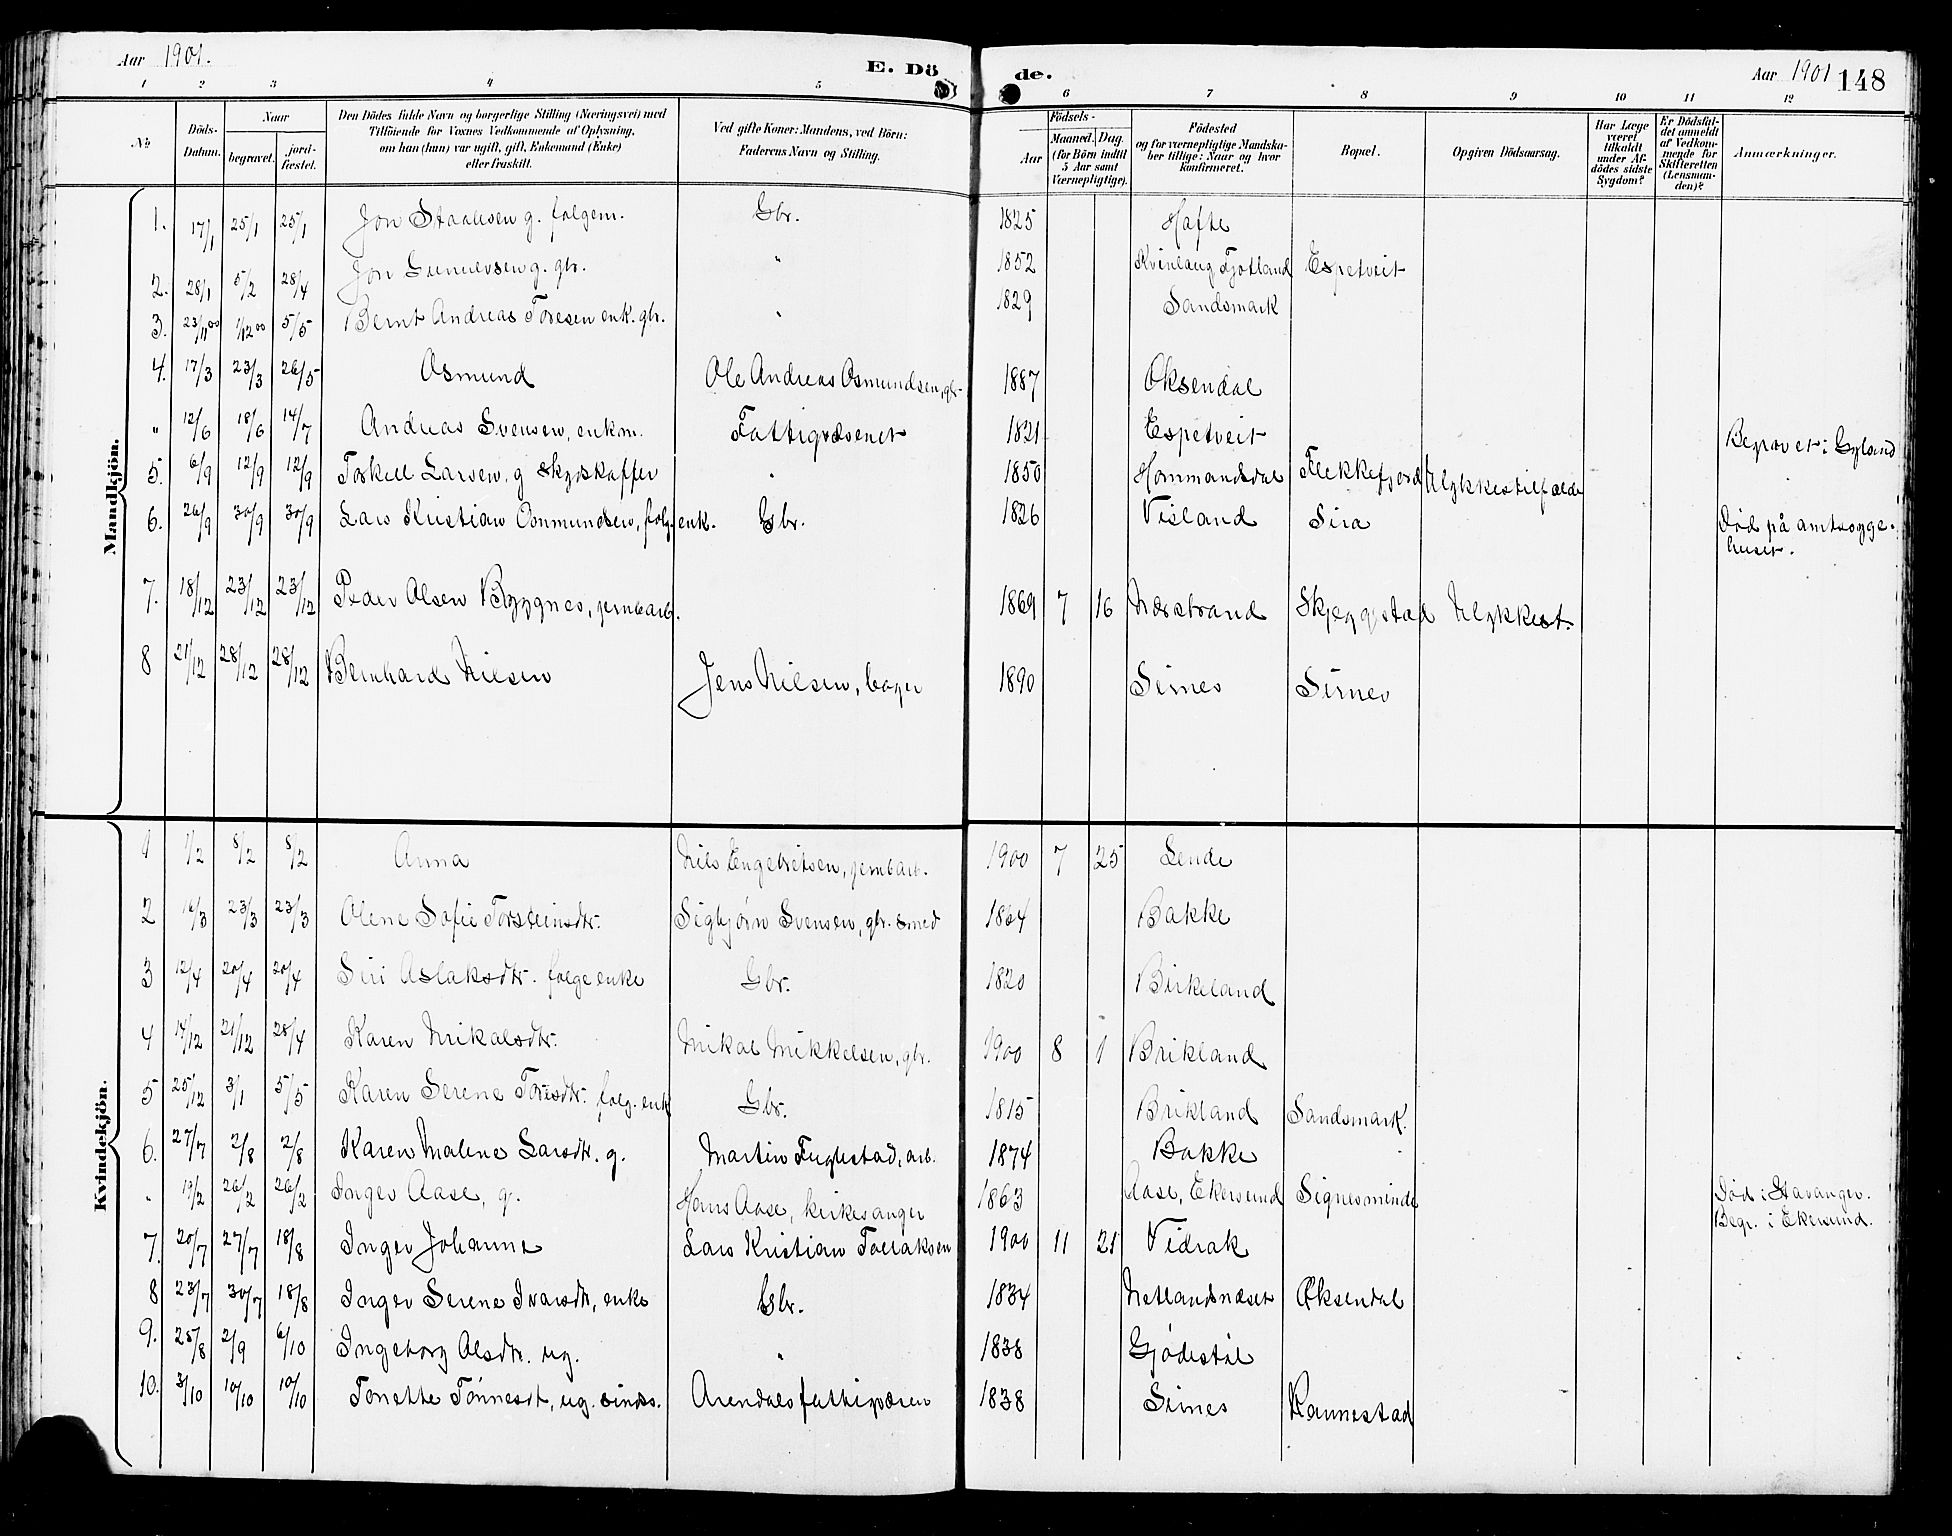 Aar 1901.
E. Dö
de.
Aar 1901
148
1 2 3 4 5 6 7 8 9 10 11 12
No.
Döds-Datum.
Naar
begravet.
jord-fæstet.
Den Dödes fulde Navn og borgerlige Stilling (Næringsvei) med
Tilföiende for Voxnes Vedkommende af Oplysning,
om han (hun) var ugift, gift, Enkemand (Enke)
eller fraskilt.
Ved gifte Koner: Mandens, ved Börn:
Faderens Navn og Stilling.
Födsels-
Aar
Maaned. Dag.
(for Börn indtil
5 Aar samt
Værnepligtige).
Födested
og for værnepligtige Mandska-
ber tillige: Naar og hvor
konfirmeret.
Bopæl.
Opgiven Dödsaarsag.
Har Læge
været
tilkaldt
under Af-
dödes sidste
Sygdom?
Er Dödsfal-
det anmeldt
af Vedkom-
mende for
Skifteretten
(Lensman-
den)?
Anmærkninger.
Mandkjön.
1. 17/1 25/1 25/1 Jon Staalesen g. folgem. Gbr. 1825 Hafte
2. 28/1 5/2 28/4 Jon Gunnevsen g. gbr. " 1852 Kvinlaug Fjotland Espetveit
3. 23/11 00 1/12 00 5/5 Bernt Andreas Toresen enk. gbr. " 1829 Sandsmark
4. 17/3 23/3 26/5 Osmund Ole Andreas Osmundsen, gbr. 1887 Øksendal
" 12/6 18/6 14/7 Andreas Svensen, enkm. Fattigvæsenet 1821 Espetveit Begravet i Gyland
5. 6/9 12/9 12/9 Torkell Larsen, g skydskaffer " 1850 Hommandsdal Flekkefjord Ulykkestilfælde
6. 26/9 30/9 30/9 Lars Kristian Osmundsen, folg. enk. Gbr. 1826 Visland Sira Død på amtssyge-
huset.
7. 18/12 23/12 23/12 Peder Olsen Byggnes, jernbarb. 1869 7 16 Nærstrand Skjeggestad Ulykkest.
8 21/12 28/12 28/12 Bernhard Nilsen Jens Nilsen, bager 1890 Sirnes Sirnes
Kvindekjön.
1 1/2 8/2 8/2 Anna Nils Engebretsen, jernbarb. 1900 7 25 Lende
2 16/3 23/3 23/3 Olene Sofie Torsteinsdtr. Sigbjørn Svensen, gbr. smed 1864 Bakke
3 12/4 20/4 20/4 Siri Aslaksdtr. folgeenke Gbr. 1820 Birkeland
4 14/12 21/12 28/4 Karen Mikalsdtr. Mikal Mikkelsen, gbr. 1900 8 1 Brikland
5 25/12 3/1 5/5 Karen Serene Toresdtr. folg. enk Gbr. 1815 Brikland Sandsmark.
6. 27/7 2/8 2/8 Karen Malene Larsdtr. g. Martin Fuglestad, arb. 1874 Bakke
" 19/2 26/2 26/2 Inger Aase, g. Hans Aase, kirkesanger 1863 Aase, Ekersund Signesminde Død i Stavanger.
Begr. i Ekersund.
7. 20/7 27/7 18/8 Inger Johanne Lars Kristian Tollaksen 1900 11 21 Vidrak
8 23/7 30/7 18/8 Inger Serene Ivarsdtr, enke Gbr. 1834 Netlandsnæset Øksendal
9. 25/8 2/9 6/10 Ingeborg Olsdtr. ug. " 1838 Gjødestøl
10. 3/10 10/10 10/10 Tonette Tønnesdt, ug. sinds. Arendals fattigvæsen 1838 Sirnes Rannestad